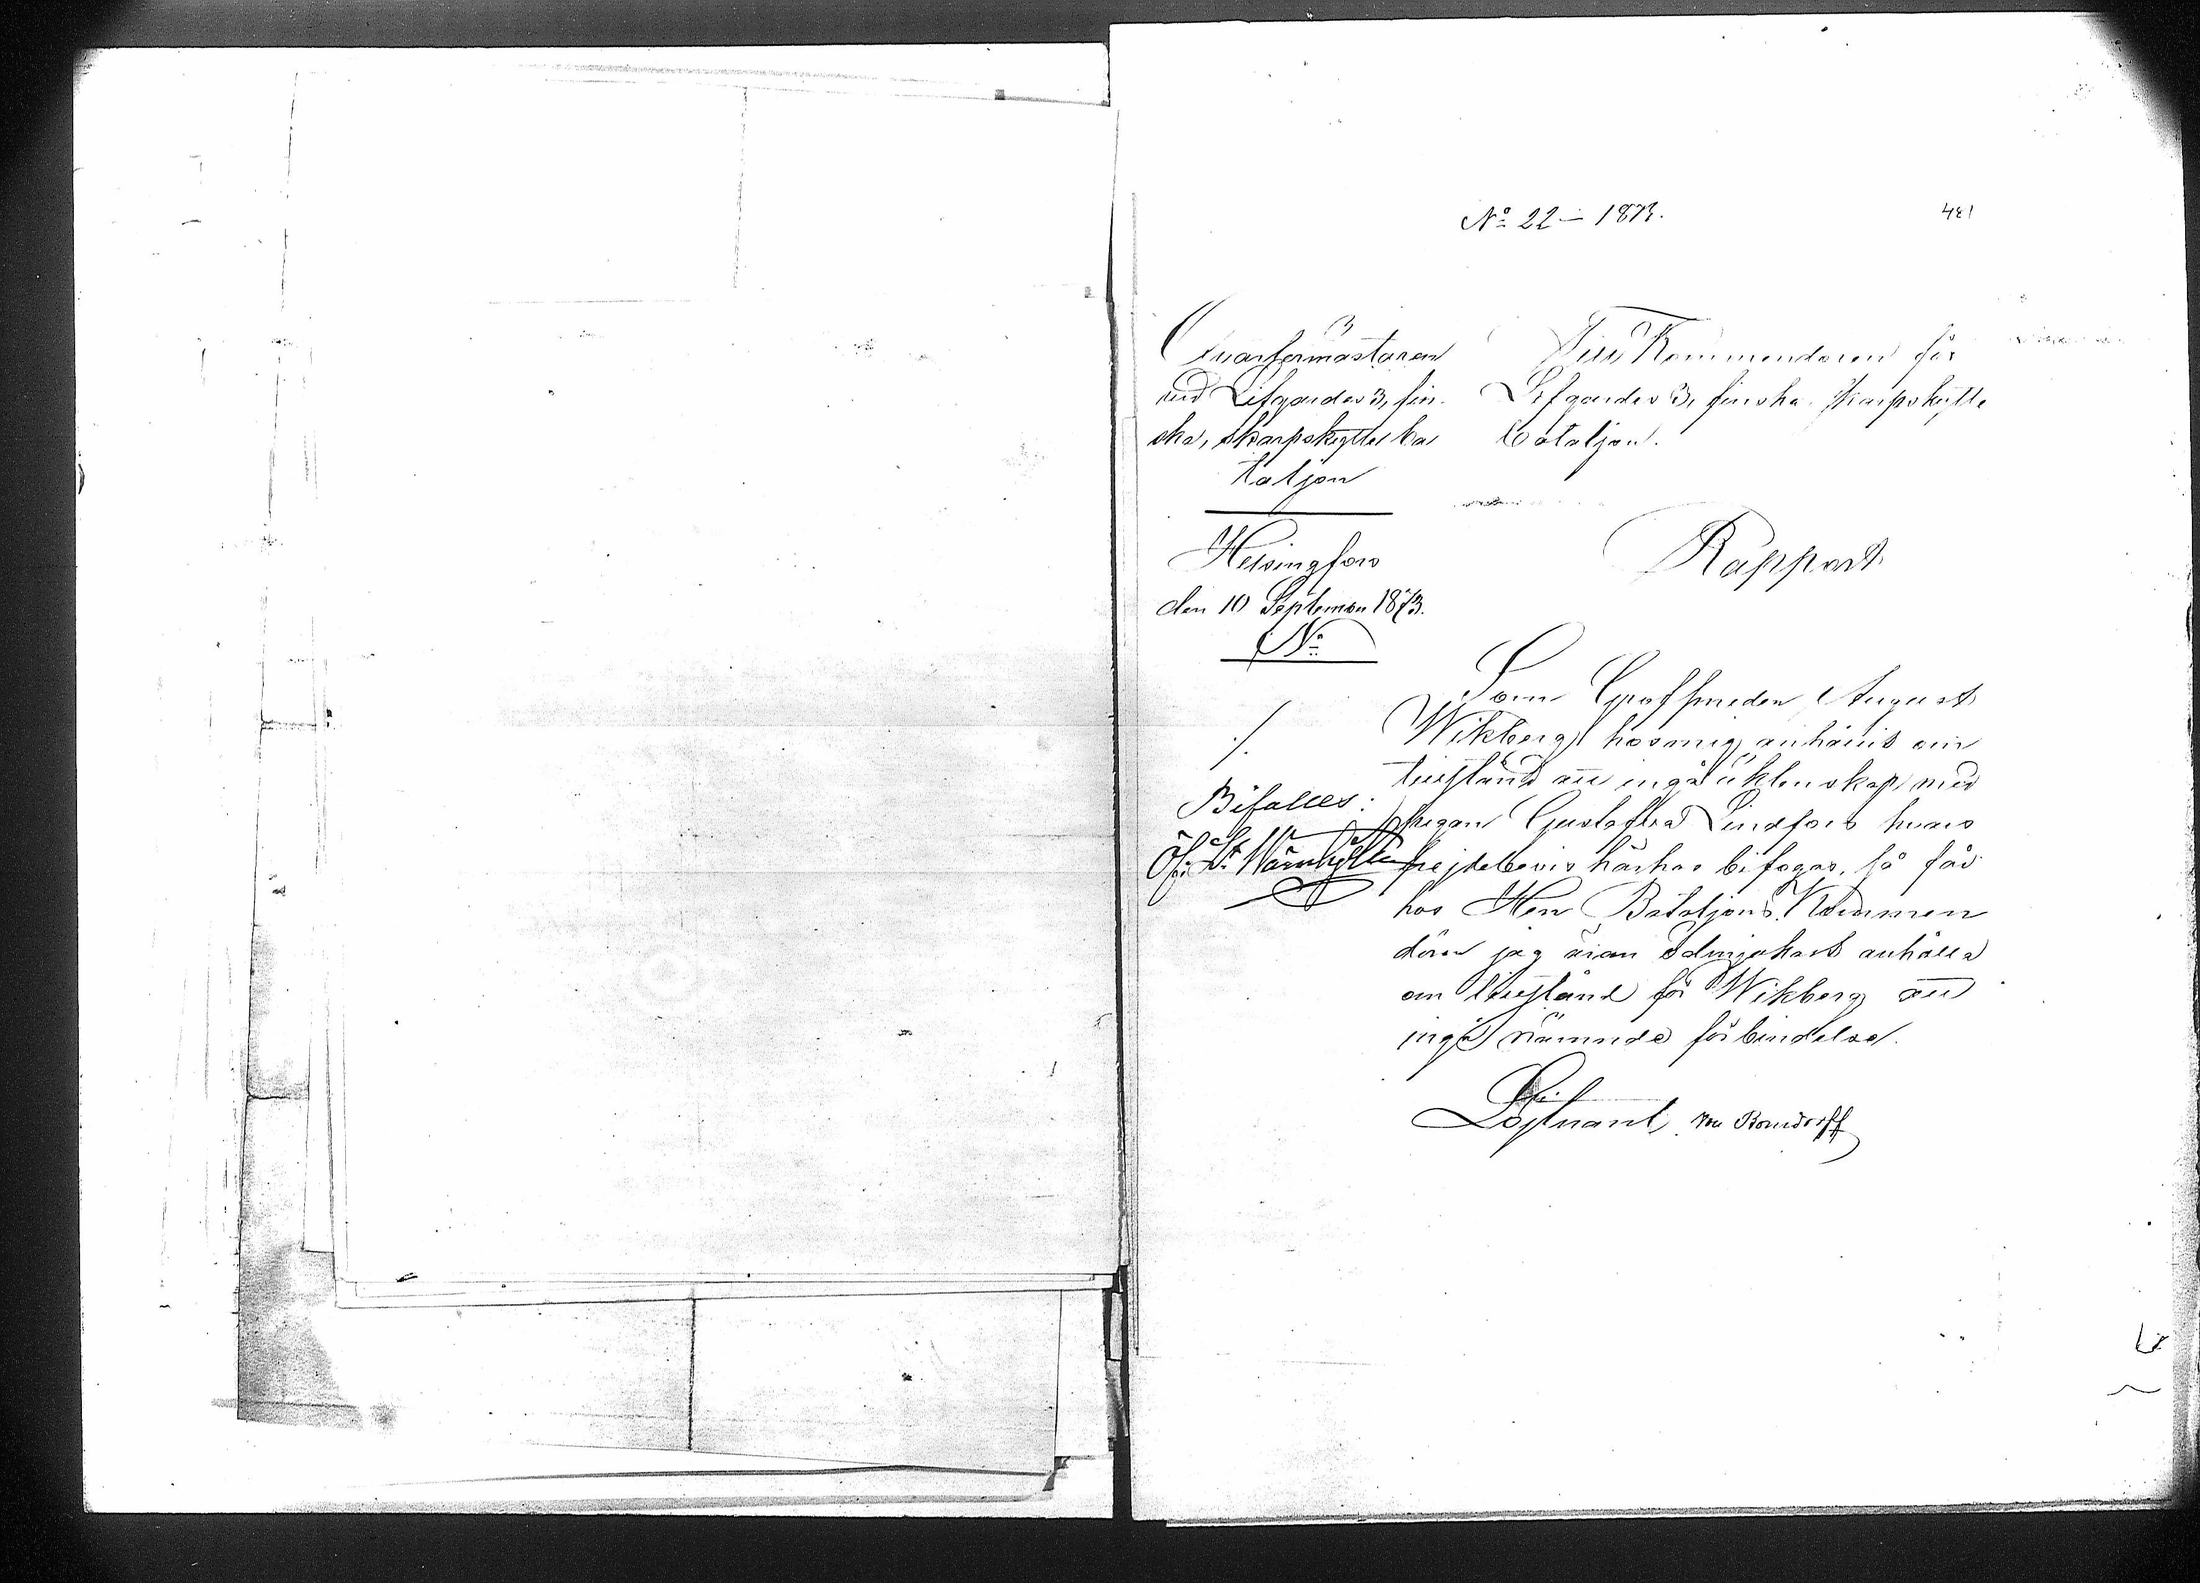 No 22 — 1873.
481
Qvartermästaren
vid Lifgardes 3, fin-
ska, skarpskytte ba
taljon
Helsingfors
den 10 September 1873.
No
Till Kommendoren för
Lifgardes 3, finska skarpskytte
Bataljon.
Rapport
./.
Bifalles:
Öf. Lt.
Som Grofsmeden August
Wikberg hos mig anhållit om
tillstånd att ingå äktenskap med
pigan Gustafva Lindfors hvars
frejdebevis härhos bifogas, så får
hos Herr Bataljons Kommen
dören jag äran ödmjukast anhålla
om tillstånd för Wikberg att
ingå nämnde förbindelse.
Löjtnant von Bonsdorff